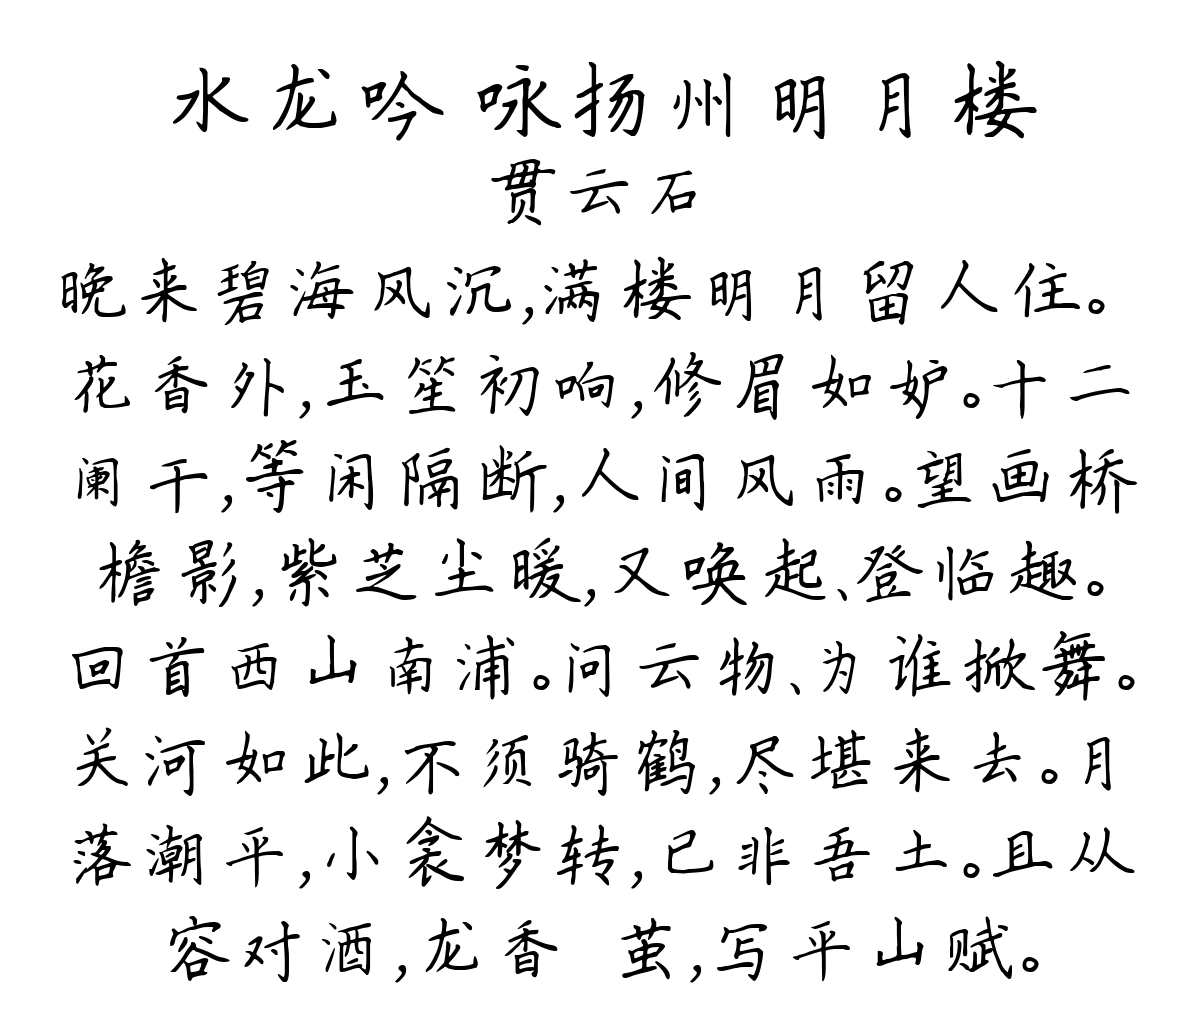 水龙吟 咏扬州明月楼
贯云石
晚来碧海风沉,满楼明月留人住。
花香外,玉笙初响,修眉如妒。十二
阑干,等闲隔断,人间风雨。望画桥
檐影,紫芝尘暖,又唤起、登临趣。
回首西山南浦。问云物、为谁掀舞。
关河如此,不须骑鹤,尽堪来去。月
落潮平,小衾梦转,已非吾土。且从
容对酒,龙香 茧,写平山赋。